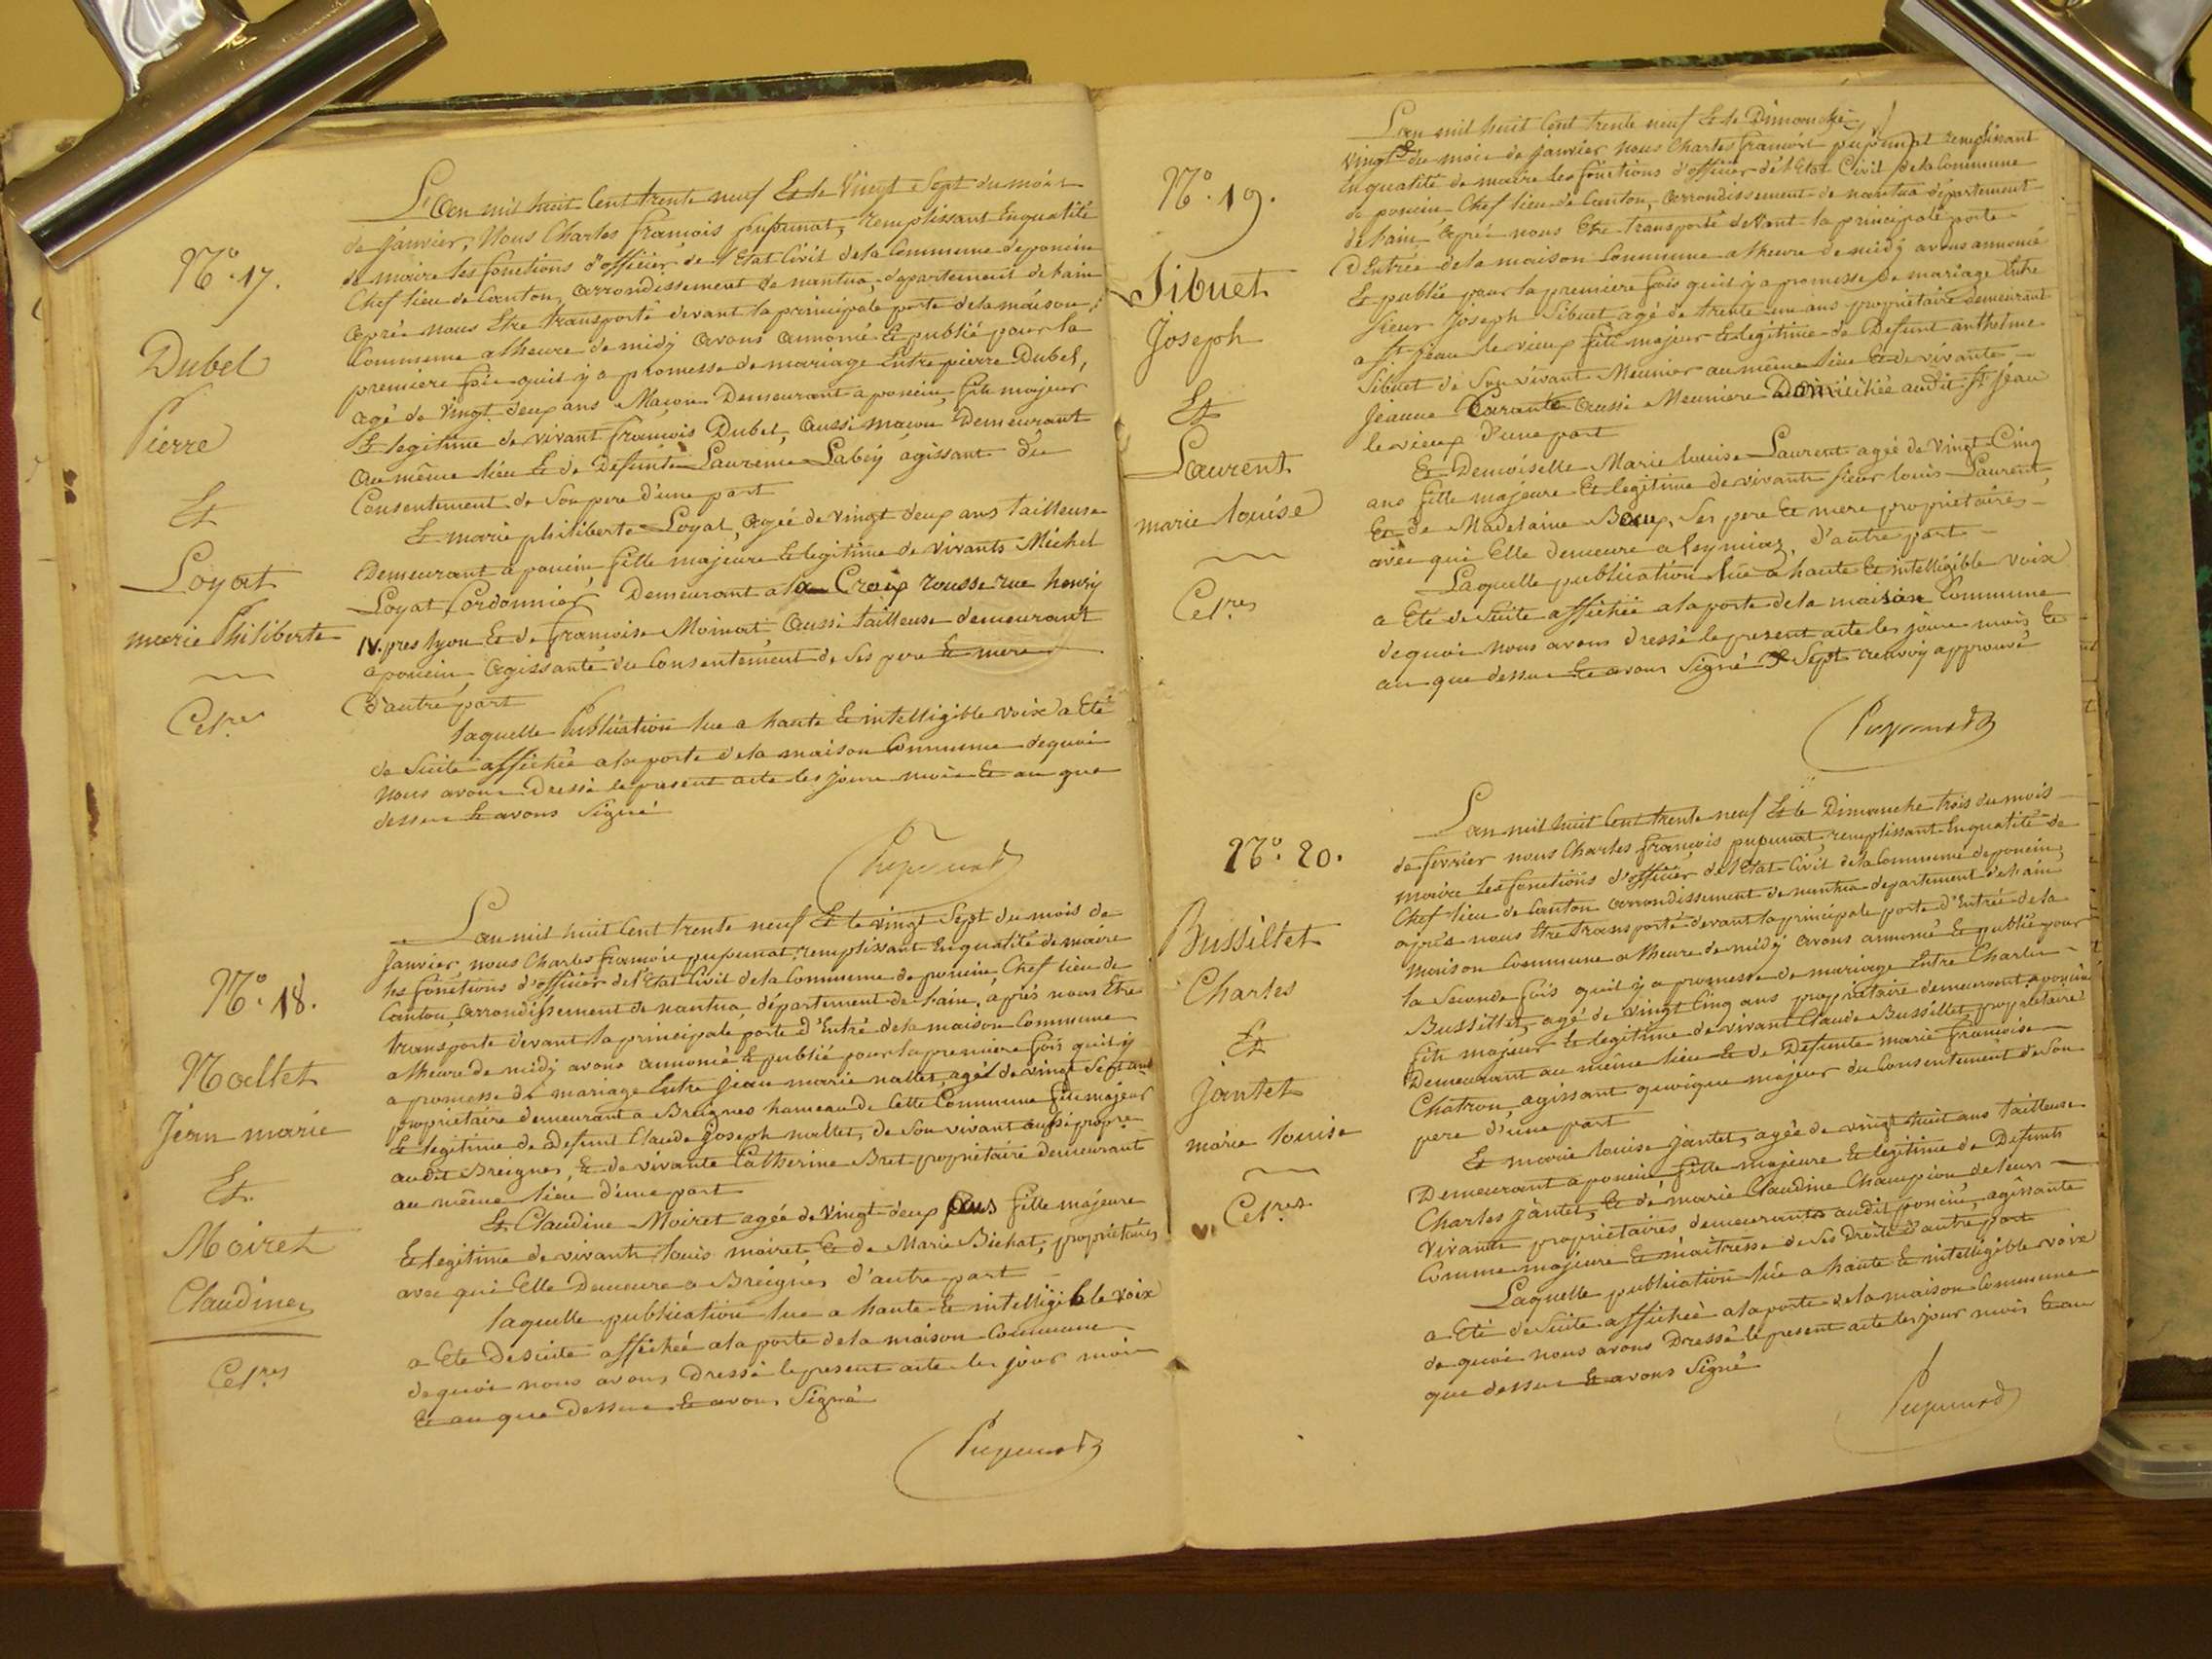 N.º 17.
Dubel
Pierre
Et
Loyat
marie Philiberte
Cel.res
L'an mil huit Cent trente neuf Et le Vingt Sept du mois
de Janvier, Nous Charles francois pupunat, remplissant Enqualité
de maire les fonctions d'officier de l'Etat Civil dela Commune deponcin
Chef lieu de Canton, arrondissement de nantua, departement delain
après nous Etre transporté devant la principale porte dela maison
Commune alheure de midy avons annoncé Et publié pour la
premiere fois quil y a promesse de mariage Entre pierre Dubel,
agé de vingt deux ans Macon Demeurant a poncin, fils majeur
Et legitime de vivant francois Dubel, aussi macon Demeurant
au même lieu Et de Defunte Laurence Labey agissant du
Consentement de Son pere d'une part
Et marie philiberte Loyat, agée de vingt deux ans tailleuse
Demeurant a poncin fille majeure Et legitime de vivants Michel
Loyat Cordonnier Demeurant a la Croix rousse rue henry
IV. pres lyon Et de francoise Moinat aussi tailleuse demeurant
a poncin, agissante du Consentement de Ses pere Et mere
d'autre part
laquelle Publication lue a haute Et intelligible voix a Eté
de Suite affichée ala porte dela maison Commune dequoi
nous avons Dressé le present acte les jour mois Et an que
dessus Et avons Signé
Pupunat
N.º 18.
Nallet
Jean marie
Et
Moiret
Claudine
Cel.res
L'an mil huit Cent trente neuf Et le vingt Sept du mois de
Janvier nous Charles francois pupunat, remplissant Enqualité de maire
les fonctions d'officier de l'Etat Civil dela Commune de poncin Chef lieu de
Canton, arrondissement de nantua, département de lain, après nous Etre
transporté devant la principale porte d'Entré dela maison Commune
alheure de midy avons annoncé Et publié pour la premiere fois quil y
a promesse de mariage Entre Jean marie nallet, agé de vingt Sept ans
propriétaire demeurant a Breignes hameau de Cette Commune fils majeur
Et legitime de Defunt Claude Joseph nallet, de Son vivant aussi propre
audit Breignes, Et de vivante Catherine Bret propriétaire Demeurant
au même lieu d'une part
Et Claudine Moiret agée de vingt deux ans fille majeure
Et legitime de vivants louis moiret Et de Marie Bichat, propriétaires
avec qui Elle Demeure a Breignes d'autre part
laquelle publication lue a haute Et intelligible voix
a Eté De suite affichée ala porte dela maison Commune
dequoi nous avons Dressé le present acte les jour mois
Et an que Dessus Et avons Signé
Pupunat
N.º 19.
Sibuet
Joseph
Et
Laurent
marie louise
Cel.res
L'an mil huit Cent trente neuf Et le Dimanche
vingt du mois de janvier nous Charles francois pupunat remplissant
Enqualité de maire les fonctions d'officier de l'Etat Civil dela Commune
de poncin Chef lieu de Canton, arrondissement de nantua département
de lain après nous Etre transporté devant la principale porte
D'Entrée dela maison Commune alheure de midy avons annoncé
Et publié pour la premiere fois quil y a promesse de mariage Entre
Sieur Joseph Sibuet agé de trente un ans propriétaire demeurant
a St jean le vieux fils majeur Et legitime de Defunt anthelme
Sibuet de Son vivant Meunier au même lieu Et de vivante
Jeanne aussi Meuniere Domiciliée audit St Jean
le vieux d'une part
Et Demoiselle Marie louise Laurent agée de vingt Cinq
ans fille majeure Et legitime de vivants sieur louis Laurent
Et de Madelaine Ses pere Et mere propriétaires
avec qui Elle demeure a leymiaz, d'autre part
Laquelle publication lue a haute Et intelligible voix
a Eté de Suite affichée ala porte dela maison Commune
dequoi nous avons dressé le present acte les jour mois Et
an que dessus Et avons Signé Sept renvoy approuvé
Pupunat
N.º 20.
Bussillet
Charles
Et
jantet
marie louise
Cel.res
L'an mil huit Cent trente neuf Et le Dimanche trois du mois
de fevrier nous Charles francois pupunat, remplissant Enqualité de
maire les fonctions d'officier de l'Etat Civil dela Commune de poncin,
Chef lieu de Canton arrondissement de nantua departement delain
après nous Etre transporté devant la principale porte d'Entrée dela
maison Commune alheure de midy avons annoncé Et publié pour
la Seconde fois quil y a promesse de mariage Entre Charles
Bussillet, agé de vingt Cinq ans propriétaire demeurant aponcin
fils majeur Et legitime de vivant Claude Bussillet, propriétaire
Demeurant au même lieu Et de Defunte marie francoise
Chatron, agissant quoique majeur du Consentement de Son
pere d'une part
Et marie louise jantet, agée de vingt huit ans tailleuse
Demeurant a poncin fille majeure Et legitime de Defunts
Charles jantet, Et de marie Claudine Champion de leurs
vivants propriétaires demeurants audit poncin, agissante
Comme majeure Et maitresse de Ses Droits d'autre part
Laquelle publication lue a haute Et intelligible voix
a Eté de Suite affichée ala porte dela maison Commune
de quoi nous avons Dressé le present acte les jour mois Et an
que dessus Et avons Signé
Pupunat